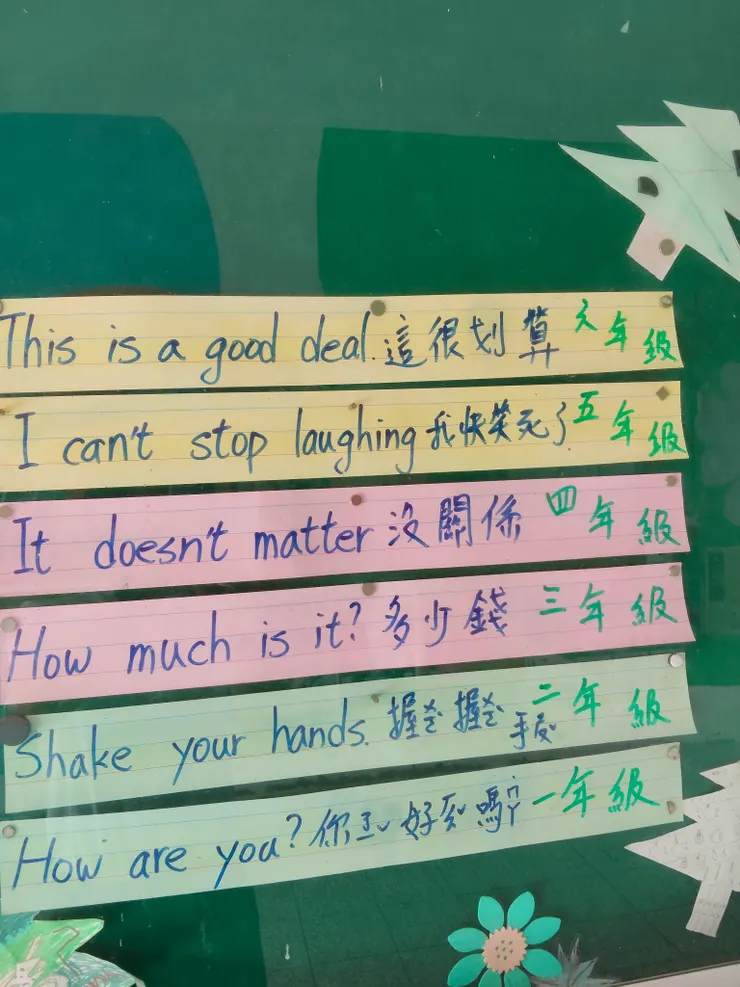 This is a good deal. 這很划算 六年級
I can't stop laughing 我快笑死了 五年級
It doesn't matter 沒關係 四年級
How much is it? 多少錢 三年級
Shake your hands. 握ㄨㄛˋ握ㄨㄛˋ手ㄕㄡˇ 二年級
How are you? 你ㄋㄧˇ好ㄏㄠˇ嗎ㄇㄚ 一年級